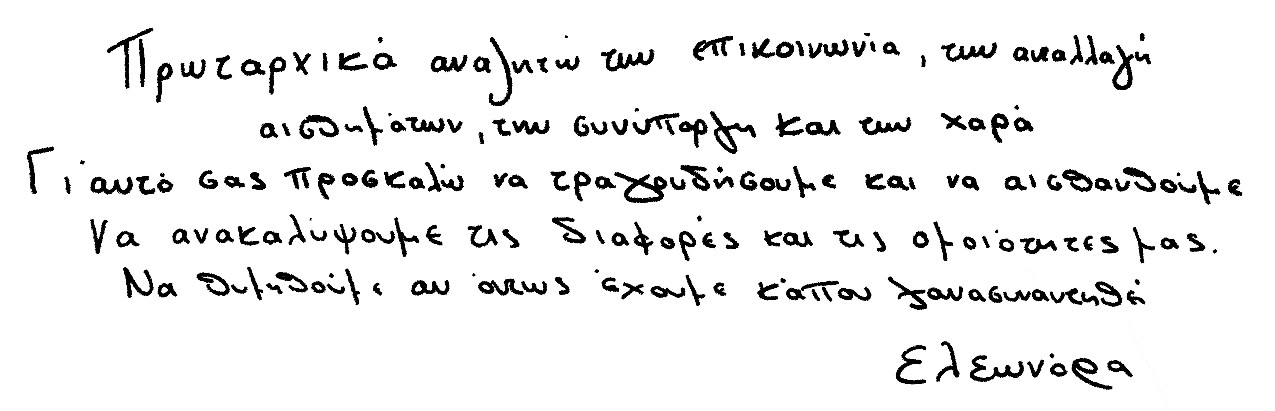 Πρωταρχικά αναζητώ την επικοινωνία, την ανταλλαγή
αισθημάτων, την συνύπαρξη και την χαρά
Γι'αυτό σας προσκαλώ να τραγουδήσουμε και να αισθανθούμε
Να ανακαλύψουμε τις διαφορές και τις ομοιότητες μας.
Να θυμηθούμε αν όντως έχουμε κάπου ξανασυναντηθεί
Ελεωνόρα